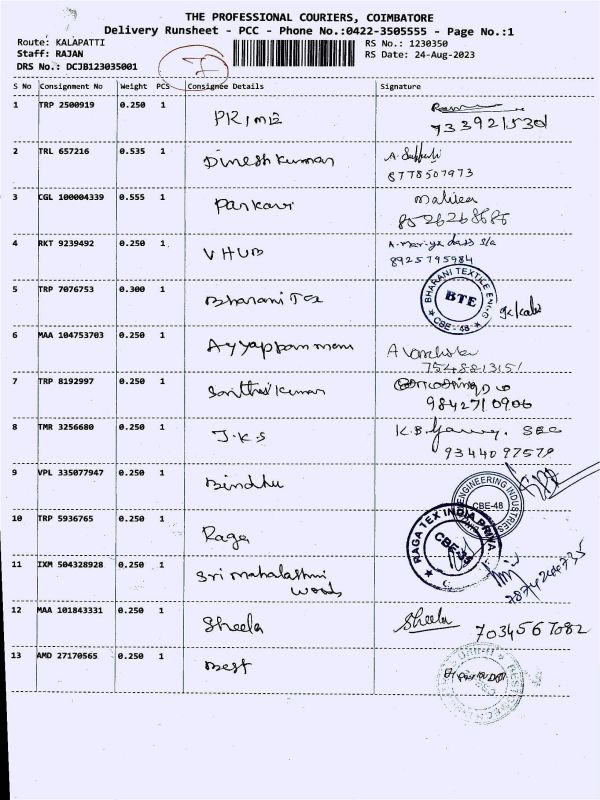 THE PROFESSIONAL COURIERS, COIMBATORE
Delivery Runsheet - PCC - Phone No.:0422-3505555 - Page No.:1
Route: KALAPATTI
Staff: RAJAN
DRS No.: DCJB123035001
I
RS No.: 1230350
RS Date: 24-Aug-2023
S No Consignment No Weight PCS Consignee Details Signature
1 TRP 2500919 0.250 1 PRIME
7339215301
2 TRL 657216 0.535 1 Dinesh kumar
8778507973
3 CGL 100004339 0.555 1 Parkavi
8526268686
4 RKT 9239492 0.250 1 V HUB
8925795984
5 TRP 7076753 0.300 1 Bharani Tex
BHARANI TEXTILE ENGG
BTE
CBE - 48
6 MAA 104753703 0.250 1 Ayyappan
7548813151
7 TRP 8192997 0.250 1 Santhosh kumar
9842710906
8 TMR 3256680 0.250 1 J.K.S K.B.
9344097579
9 VPL 335077947 0.250 1 Bindhu
ENGINEERING INDUSTRIES
CBE-48
10 TRP 5936765 0.250 1 Raga
RAGA TEX INDIA PRIVA
CBE
11 IXM 504328928 0.250 1 Sri mahalashmi
woods
7874244735
12 MAA 101843331 0.250 1 Sheela Sheela 7034567082
13 AMD 27170565 0.250 1 Best